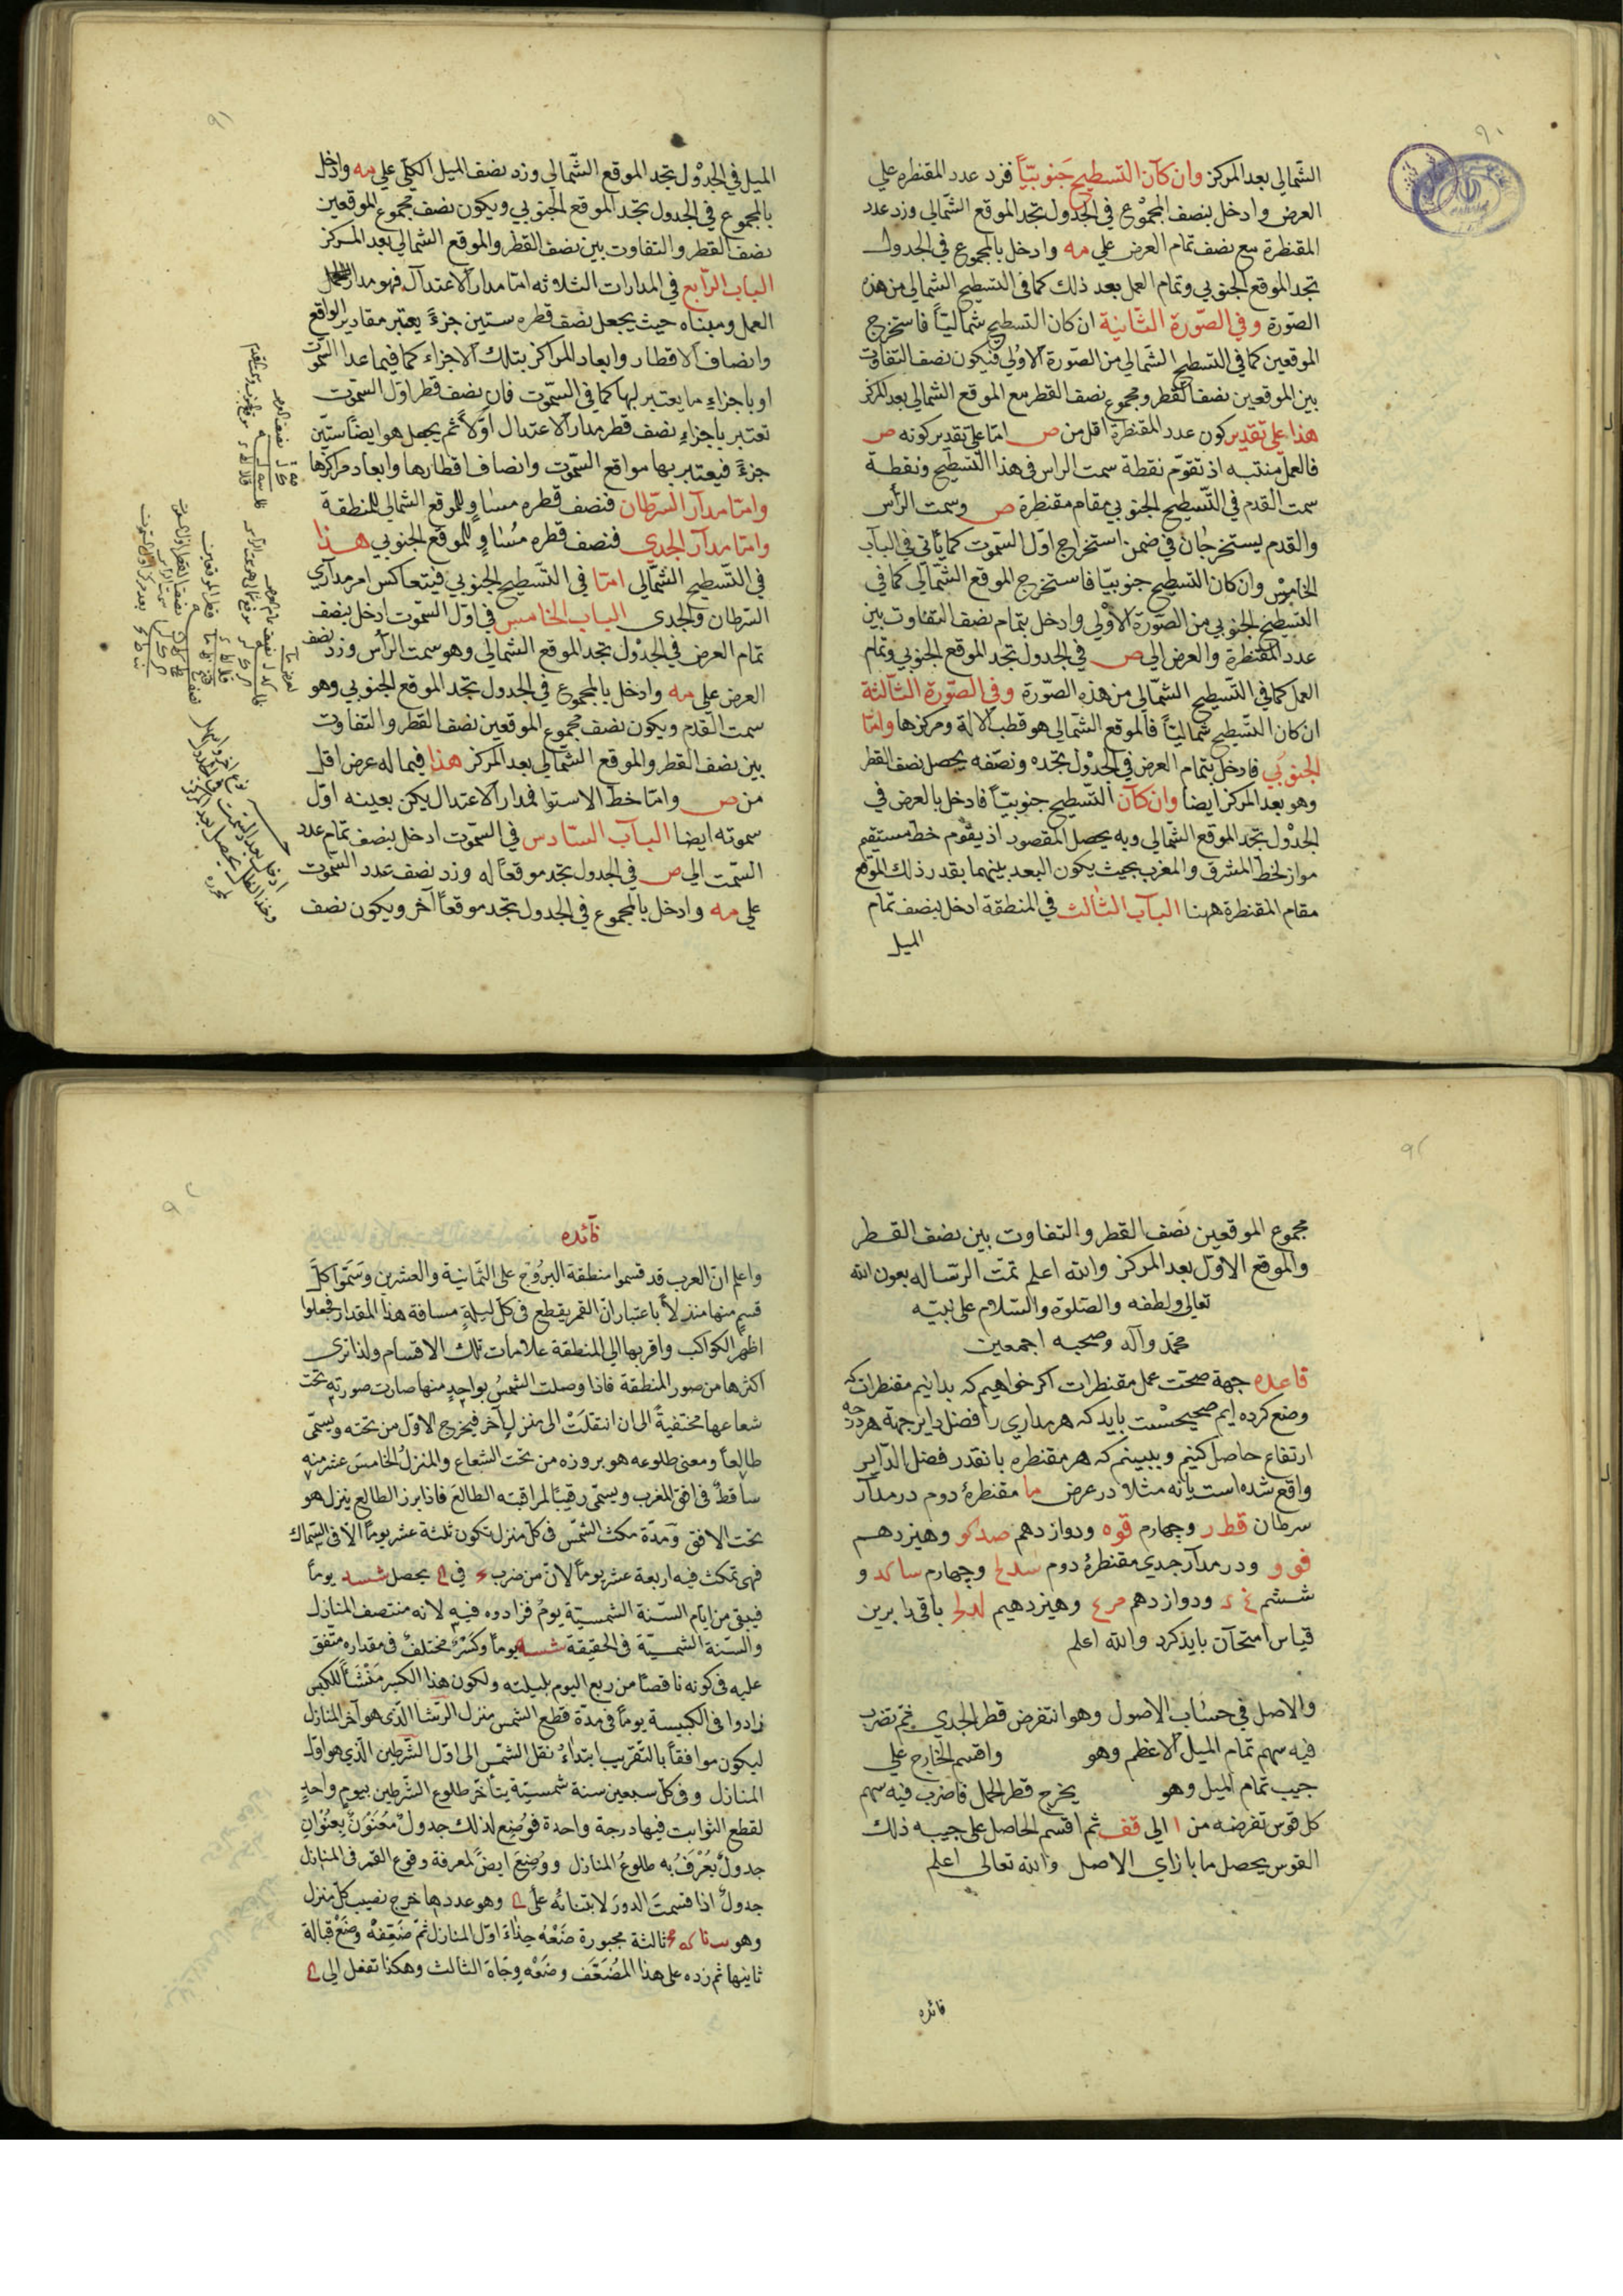 الشمالي بعد المركز وان كان التسطيح جنوبيّاً فزد عدد المقنطره علي
العرض وادخل بنصف المجموع في الجدول تجد الموقع الشمالي وزد عدد
المقنطرة مع نصف تمام العرض علي مه وادخل بالمجموع في الجدول
تجد الموقع الجنوبي وتمام العمل بعد ذلك كما في التسطيح الشمالي من هذه
الصورة وفي الصّورة الثّانية ان كان التسطيح شماليّاً فاستخرج
الموقعين كما في التسطيح الشمالي من الصورة الاولي فيكون نصف التفاوت
بين الموقعين نصف القطر ومجموع نصف القطر مع الموقع الشمالي بعد المركز
هذا علي تقدير كون عدد المقنطرة اقل من ص امّا علي تقدير كونه ص
فالعمل منتبه اذ تقوّم نقطة سمت الراس في هذا التسطيح ونقطة
سمت القدم في التّسطيح الجنوبي مقام مقنطرة ص وسمت الرأس
والقدم يستخرجان في ضمن استخراج اول السموت كما يأتي في الباب
الخامس وان كان التسطيح جنوبيّا فاستخرج الموقع الشمالي كما في
التسطيح الجنوبي من الصّورة الاولي وادخل بتمام نصف التفاوت بين
عدد المقنطرة والعرض الي ص في الجدول تجد الموقع الجنوبي وتمام
العمل كما في التّسطيح الشمّالي من هذه الصّورة وفي الصّورة الثّالثة
ان كان التّسطيح شماليّاً فالموقع الشمالي هو قطب الالة ومركزها وامّا
الجنوبي فادخل بتمام العرض في الجدول تجده ونصّفه يحصل نصف القطر
وهو بعد المركز ايضا وان كان التّسطيح جنوبيّاً فادخل بالعرض في
الجدول تجد الموقع الشمالي وبه يحصل المقصود اذ يقوم خط مستقيم
مواز لخط المشرق والمغرب بحيث يكون البعد بينهما بقدر ذلك الموقع
مقام المقنطرة ههنا الباب الثالث في المنطقة ادخل بنصف تمام
الميل
الميل في الجدول تجد الموقع الشمالي وزد نصف الميل الكلّي علي مه وادخل
بالمجموع في الجدول تجد الموقع الجنوبي ويكون نصف مجموع الموقعين
نصف القطر والتفاوت بين نصف القطر والموقع الشمالي بعد المركز
الباب الرّابع في المدارات الثلاثه امّا مدار الاعتدال فهو مدار
العمل ومبناه حيث يجعل نصف قطره ستين جزءً يعتبر مقادير الواقع
وانصاف الاقطار وابعاد المراكز بتلك الاجزاء كما فيما عدا السّموت
او باجزاء ما يعتبر لها كما في السّموت فان نصف قطر اول السموت
تعتبر باجزاء نصف قطر مدار الاعتدال اوّلاً ثم يجعل هو ايضاً ستّين
جزءً فيعتبر بها مواقع السّموت وانصاف اقطارها وابعاد مراكزها
وامّا مدار السرّطان فنصف قطره مساوٍ للموقع الشمالي للمنطقة
وامّا مدار الجدي فنصف قطره مُساوٍ للموقع الجنوبي هذا
في التّسطيح الشمّالي امّا في التّسطيح الجنوبي فيتعاكس امر مداري
السّرطان والجدى الباب الخامس في اوّل السّموت ادخل بنصف
تمام العرض في الجدول تجد الموقع الشمالي وهو سمت الرأس وزد نصف
العرض علي مه وادخل بالمجموع في الجدول تجد الموقع الجنوبي وهو
سمت القدم ويكون نصف مجموع الموقعين نصف القطر والتفاوت
بين نصف القطر والموقع الشمّالي بعد المركز هذا فيما له عرض اقل
من ص وامّا خط الاستوا فمدار الاعتدال يكون بعينه اول
سموته ايضا الباب السّادس في السّموت ادخل بنصف تمام عدد
السّمت الي ص في الجدول تجد موقعاً له وزد نصف عدد السّموت
علي مه وادخل بالمجموع في الجدول تجد موقعاً آخر ويكون نصف
مجموع الموقعين نصف القطر والتفاوت بين نصف القطر
والموقع الاوّل بعد المركز والله اعلم تمّت الرّساله بعون الله
تعالي ولطفه والصّلوة والسّلام علي نبيّه
محمّد وآله وصحبه اجمعين
قاعده جهة صحّت عمل مقنطرات اكر خواهيم كه بدانيم مقنطرات كه
وضع كرده ايم صحيحست بايد كه هر مداري را فضل داير جهة هر درجه
ارتفاع حاصل كنيم وببينم كه هر مقنطره بانقدر فضل الدّاير
واقع شده است يا نه مثلا در عرض ما مقنطرهٔ دوم در مدار
سرطان قطر وچهارم قوه ودوازدهم صدكو وهيزدهم
فوو ودر مدار جدي مقنطرهٔ دوم وچهارم ساكد و
ششم ودوازدهم وهيزدهيم باقي را برين
قياس امتحان بايد كرد والله اعلم
والاصل في حساب الاصول وهو ان تفرض قطر الجدي ثم تضرب
فيه سهم تمام الميل الاعظم وهو واقسم الخارج علي
جيب تمام الميل وهو يخرج قطر الحمل فاضرب فيه سهم
كل قوس تفرضه من ا الي قف ثم اقسم الحاصل علي جيبه ذلك
القوس يحصل ما بازاي الاصل والله تعالى اعلم
فائده
فائده
واعلم انّ العرب قد قسموا منطقة البروج على الثمانية والعشرين وسَمّوا كلّ
قسم منها منزلاً باعتبار انّ القمر يقطع في كل ليلةٍ مسافة هذا المقدار فجعلوا
اظهر الكواكب واقربها الي المنطقة علامات تلك الاقسام ولذا ترى
اكثرها من صور المنطقة فاذا وصلت الشمسُ بواحدٍ منها صارت صورته تحت
شعاعها مختفيةً الى ان انتقلَتْ الى منزلٍ آخر فيخرج الاول من تحته ويسمّى
طالعاً ومعنى طلوعه هو بروزه من تحت الشعاع والمنزلُ الخامسَ عشر منه
ساقطٌ في افق المغرب ويسمّى رقيباً لمراقبته الطالع فاذا برز الطالع ينزل هو
تحت الافق ومدّة مكث الشّمس في كلّ منزل تكون ثلثة عشر يوماً الا في السّماك
فهي تمكث فيه اربعة عشر يوماً لانّ من ضرب في يحصل شسد يوماً
فيبقى من ايام السّنة الشمسيّة يومٌ فزادوه فيه لانه منتصف المنازل
والسّنة الشمسيّة في الحقيقة شسه يوماً وكَسْرٌ مختلفٌ في مقداره متّفق
عليه في كونه ناقصاً من ربع اليوم بليلته ولكون هذا الكسر مَنْشَأً للكبس
زادوا في الكبيسة يوماً في مدّة قطع الشمس منزل الرّشا الّذي هو آخر المنازل
ليكون موافقاً بالتّقريب ابتداءُ نقل الشمّس الى اوّل الشّرطين الّذي هو اوّل
المنازل وفي كلّ سبعين سنة شمسيّة يتأخّر طلوع الشّرطين بيومٍ واحدٍ
لقطع الثوابت فيها درجة واحدة فوُضِع لذلك جدولٌ مُعَنْوَنٌ بعُنْوَانِ
جدولٌ يُعْرَفُ به طلوعُ المنازل ووُضِعَ ايضً لمعرفة وقوع القمر في المنازل
جدولٌ اذا قسمتَ الدورَ لابتنائه على وهو عددها خرج نصيب كلّ منزل
وهو ثالثة مجبورة ضَعْهُ حِذاءَ اوّل المنازل ثمّ ضَعّفْهُ وضَعْ قبالة
ثانيها ثم زده على هذا المُضَعَّف وضَعْه وِجَاهَ الثالث وهكذا تفعل الى